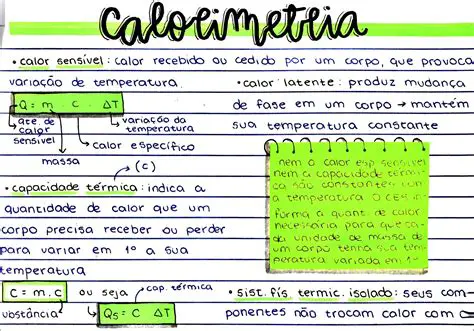 Calorimetria
• calor sensível: calor recebido ou cedido por um corpo, que provoca
variação de temperatura.
• calor latente: produz mudança
de fase em um corpo → mantém
sua temperatura constante
Q = m . c . ΔT
qte. de
calor
sensível
massa
calor específico
variação da
temperatura
(C)
• capacidade térmica: indica a
quantidade de calor que um
corpo precisa receber ou perder
para variar em 1º a sua
temperatura
nem o calor esp sensível
nem a capacidade térmi-
ca são constantes com
a temperatura. O ces in
forma a quant. de calor
necessária para que ca-
da unidade de massa de
um corpo tenha sua tem-
peratura variada em 1º
C = m . c ou seja
cap. térmica
substância
Qs = C ΔT
• sist. fís. termic. isolado: seus com-
ponentes não trocam calor com